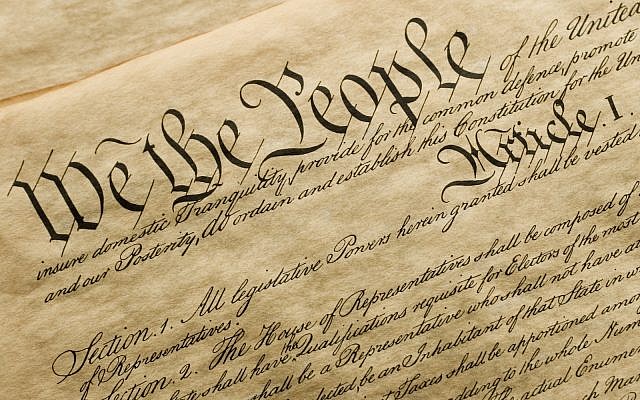 We the People of the United
insure domestic Tranquility, provide for the common defence, promote
and our Posterity, do ordain and establish this Constitution for the Un
Article. I.
Section. 1. All legislative Powers herein granted shall be vested
of Representatives.
Section. 2. The House of Representatives shall be composed of
shall have the Qualifications requisite for Electors of the most
shall be a Representative who shall not have a
be an Inhabitant of that State in w
Taxes shall be apportioned amo
adding to the whole Num
actual Enume